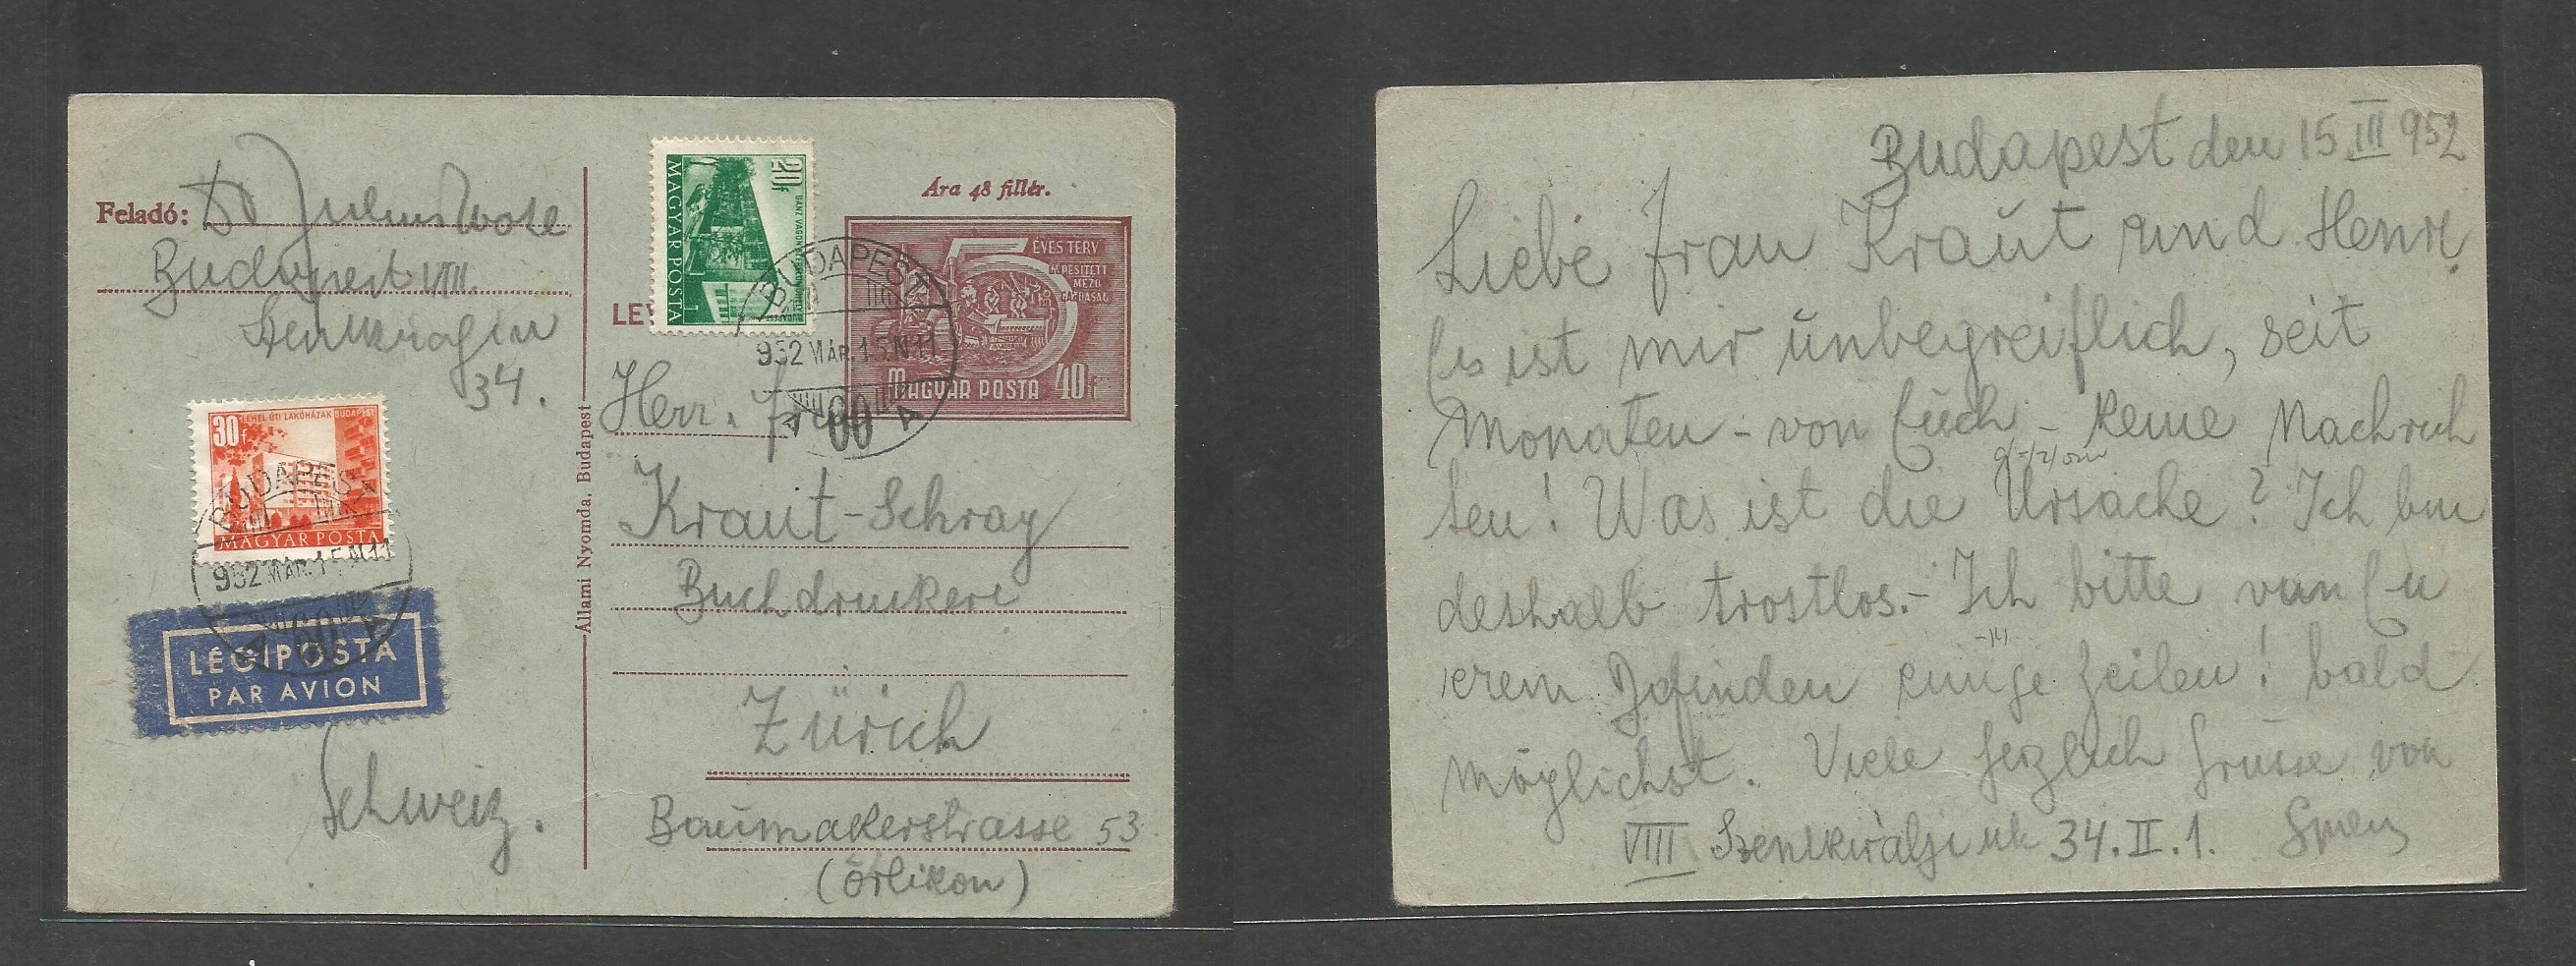 Feladó: Dr Julius
Budapest VIII.
34.
30f LEHEL ÚTI LAKÓHÁZAK BUDAPEST
MAGYAR POSTA
BUDAPEST
952 MÁR. 15. N 11
LÉGIPOSTA
PAR AVION
Schweiz.
Állami Nyomda, Budapest
20f
MAGYAR POSTA
BUDAPEST
952 MÁR. 15. N 11
A 60 A
Ára 48 fillér.
5 ÉVES TERV
GÉPESÍTETT
MEZŐ
GAZDASÁG
MAGYAR POSTA 40f
LEV
Herr.
Kraut-Schray
Buchdruckere
Zürich
Baumakerstrasse 53
(Örlikon)
Budapest den 15 III 952
Liebe Frau Kraut und Henri.
Es ist mir unbegreiflich, seit
Monaten - von Euch - keine Nachrich
ten! Was ist die Ursache? Ich bin
deshalb trostlos. - Ich bitte von Eu
erem Befinden einige Zeilen! bald
möglichst. Viele herzlich Grüsse von
VIII Szentkirályi u 34. II. 1.